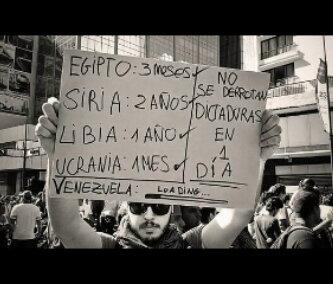 EGIPTO: 3 MESES ✓
SIRIA: 2 AÑOS ✓
LIBIA: 1 AÑO ✓
UCRANIA: 1 MES ✓
VENEZUELA: LOADING...
NO
SE DERROTAN
DICTADURAS
EN
1
DÍA